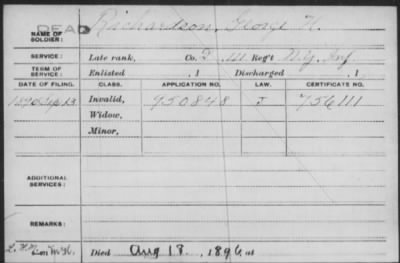 DEAD
NAME OF SOLDIER: Richardson, George H.
SERVICE: Late rank, Co. D, 111 Reg't N.Y. Inf
TERM OF SERVICE: Enlisted , 1 Discharged , 1
DATE OF FILING. CLASS. APPLICATION NO. LAW. CERTIFICATE NO.
1890 Sep 13 Invalid, 950848 J 756111
Widow,
Minor,
ADDITIONAL SERVICES:
REMARKS:
Died Aug 18, 1896, at